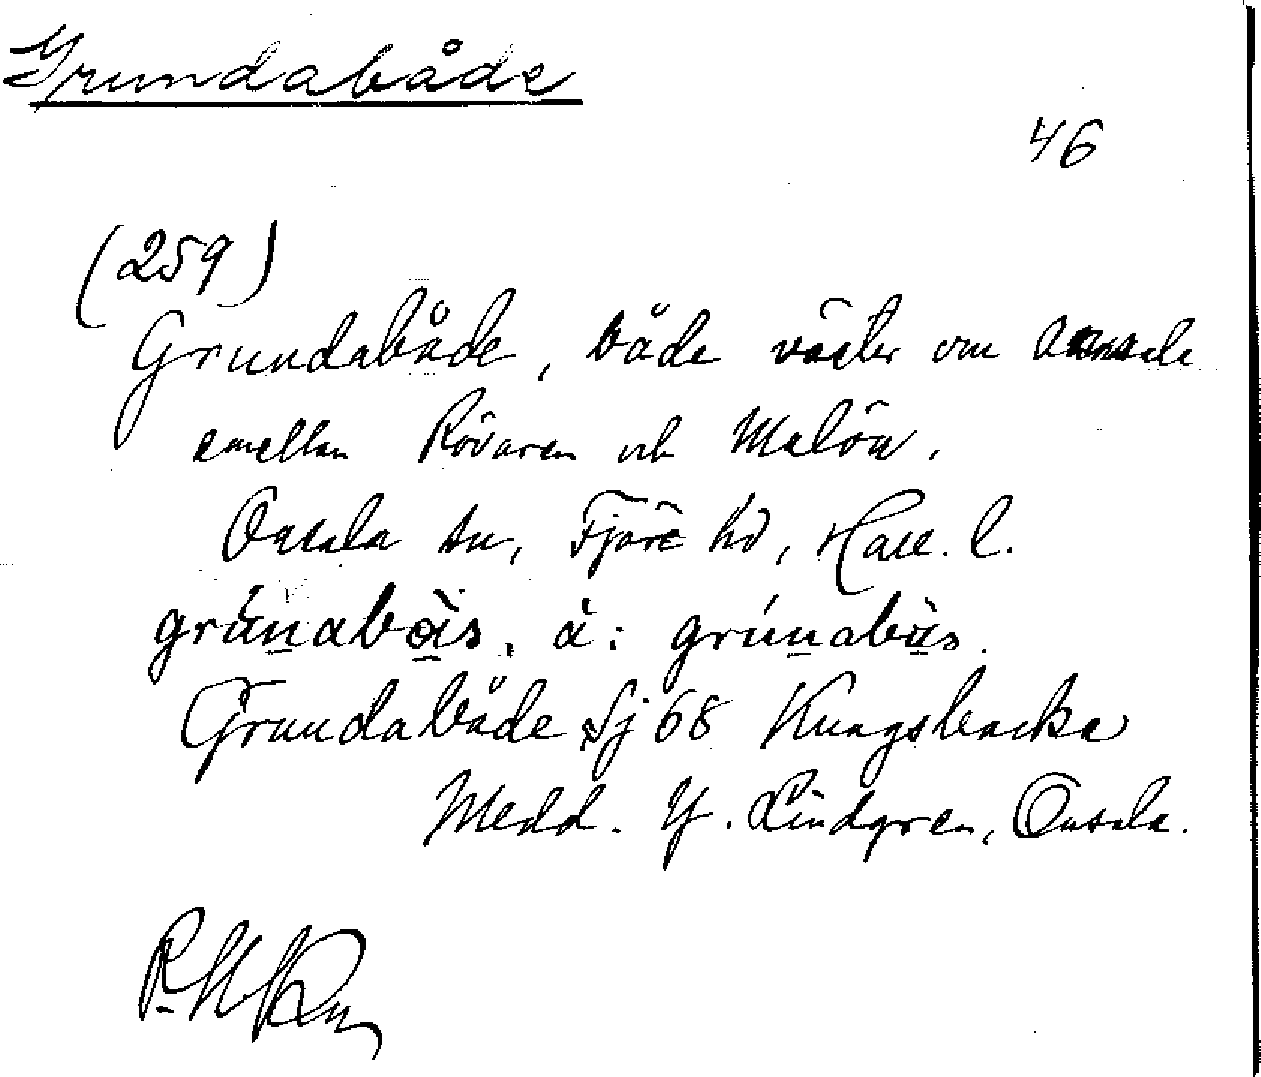 Grundabåde
46
(259)
Grundabåde, både väster om
emellan Rövaren och Malön.
Onsala sn, Fjäre hd, Hall. l.
Grundabåde Sj 68 Kungsbacka
Medd. Y. Lindgren, Onsala.